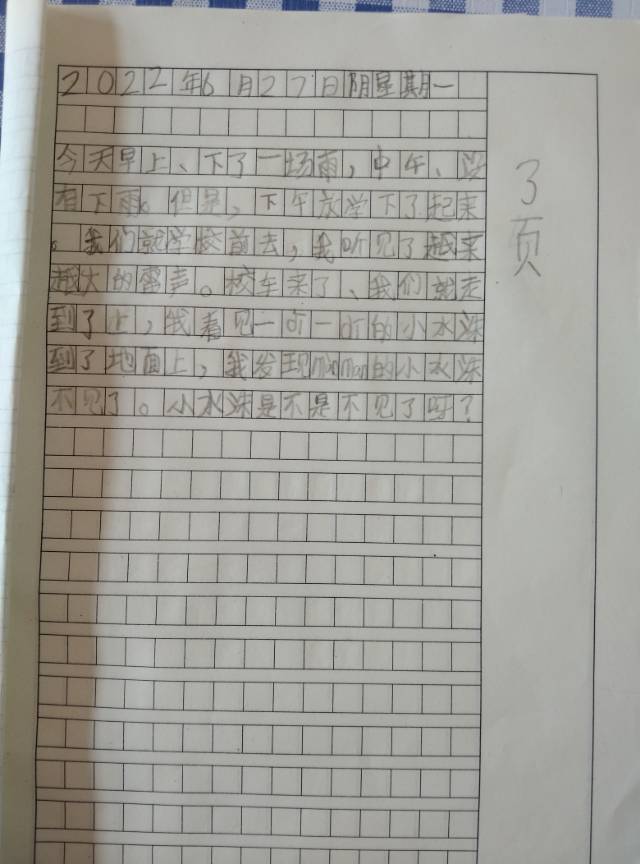 2022年6月27日阴星期一
今天早上、下了一场雨，中午、没
有下雨。但是，下午放学下了起来
。我们就学校前去，我听见了越来
越大的雷声。校车来了、我们就走
到了上，我看见一的小水洙
到了地面上，我发现manman的小水洙
不见了。小水洙是不是不见了呀？
3页